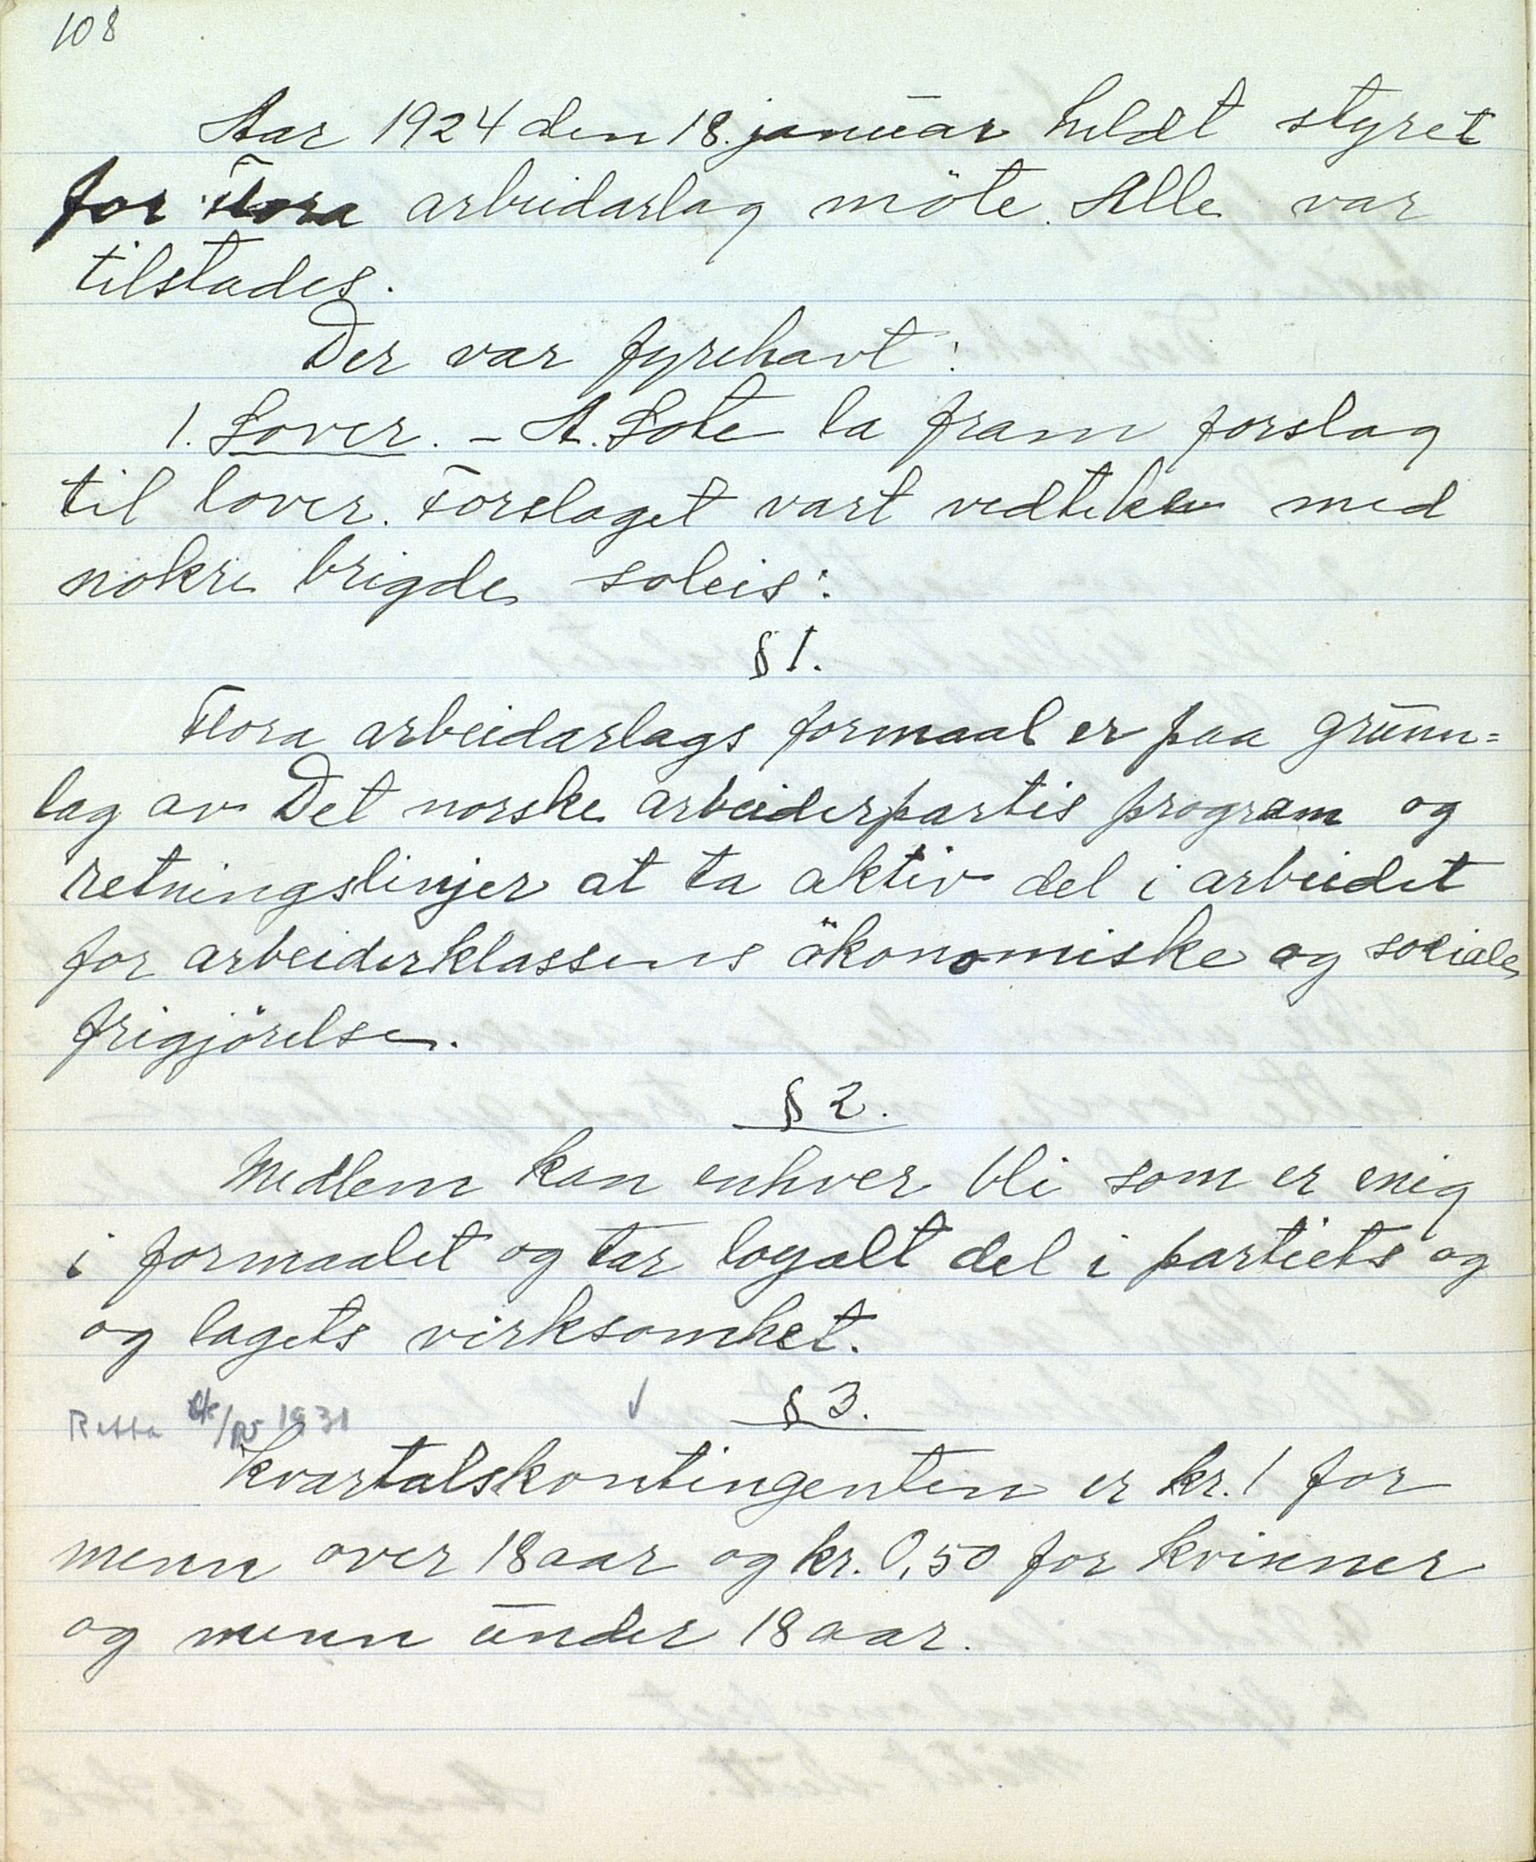 108
Aar 1924 den 18. januar heldt styret
for Flora arbeidarlag möte. Alle var
tilstades.
Der var fyrehavt:
1. Lover. – A. Sote la fram forslag
til lover. Forslaget vart vedteke med
nokre brigde soleis:
§ 1.
Flora arbeidarlags formaal er paa grunn=
lag av Det norske arbeiderpartis program og
retningslinjer at ta aktiv del i arbeidet
for arbeiderklassens ökonomiske og sociale
frigjörelse.
§ 2.
Medlem kan enhver bli som er enig
i formaalet og tar loyalt del i partiets og
og lagets virksomhet.
§ 3.
Retta 1931
Kvartalskontingenten er kr. 1 for
menn over 18 aar og kr. 0,50 for kvinner
og menn under 18 aar.